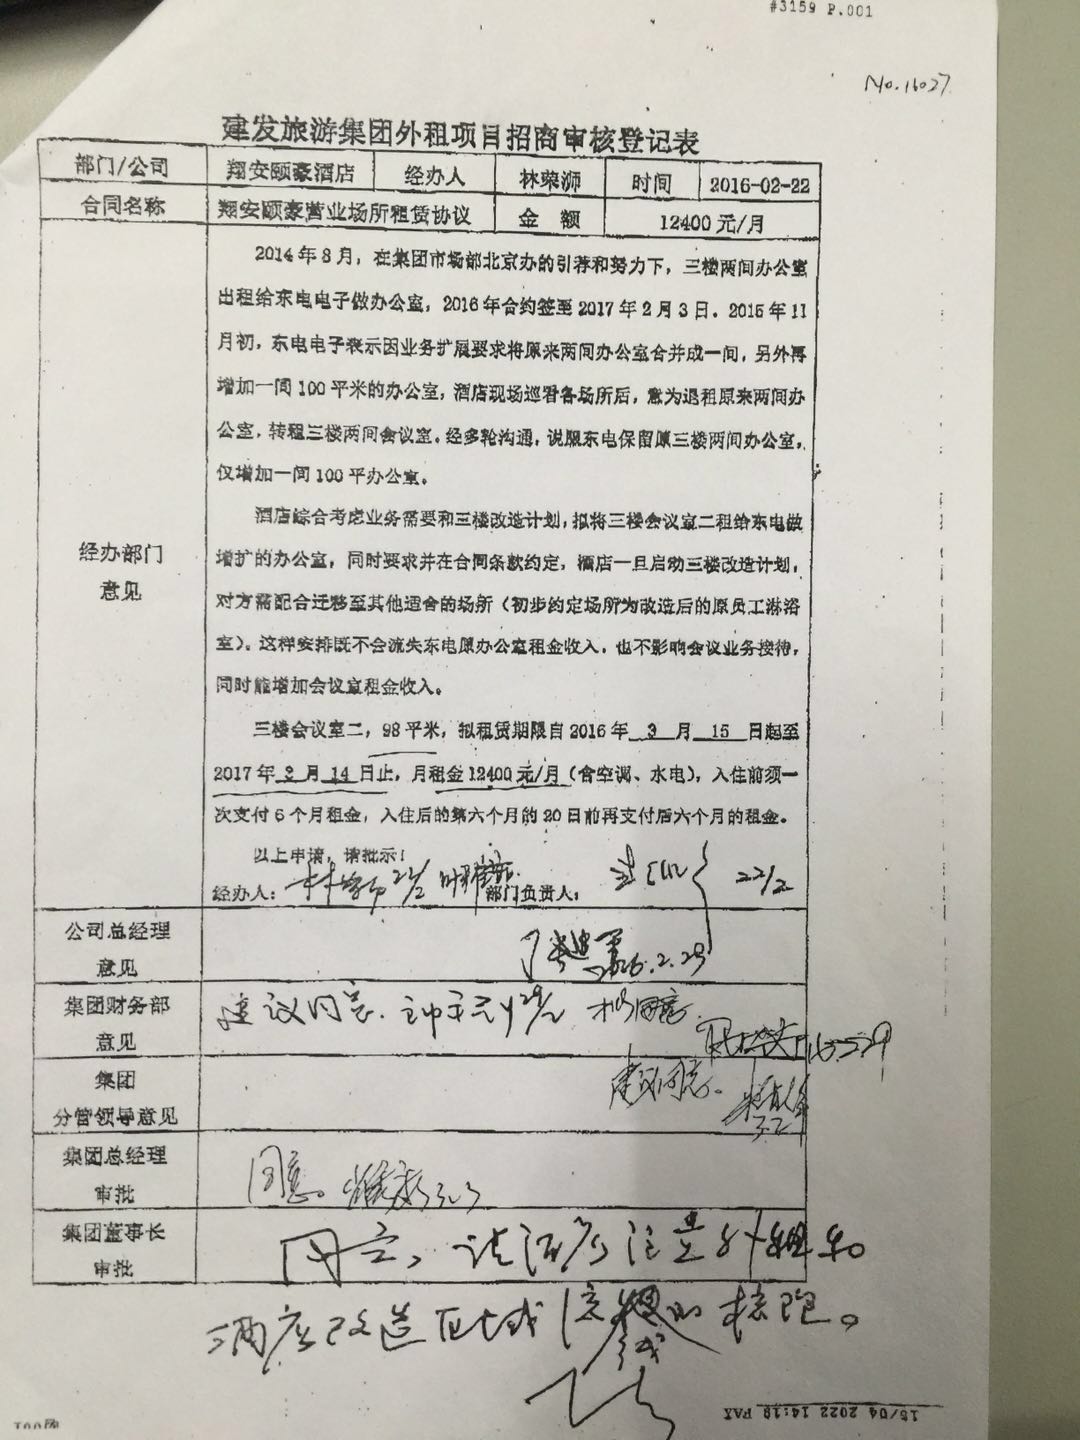 #3159 P.001
No.16027
建发旅游集团外租项目招商审核登记表
部门/公司 翔安颐豪酒店 经办人 林荣浉 时间 2016-02-22
合同名称 翔安颐豪营业场所租赁协议 金 额 12400 元/月
2014年8月，在集团市场部北京办的引荐和努力下，三楼两间办公室
出租给东电电子做办公室，2016年合约签至2017年2月3日。2015年11
月初，东电电子表示因业务扩展要求将原来两间办公室合并成一间，另外再
增加一间100平米的办公室，酒店现场巡看各场所后，意为退租原来两间办
公室，转租三楼两间会议室。经多轮沟通，说服东电保留原三楼两间办公室，
仅增加一间100平办公室。
酒店综合考虑业务需要和三楼改造计划，拟将三楼会议室二租给东电做
增扩的办公室，同时要求并在合同条款约定，酒店一旦启动三楼改造计划，
对方需配合迁移至其他适合的场所（初步约定场所为改造后的原员工淋浴
室）。这样安排既不会流失东电原办公室租金收入，也不影响会议业务接待，
同时能增加会议室租金收入。
经办部门
意见
三楼会议室二，98平米，拟租赁期限自2016年 3 月 15 日起至
2017年 3 月 14 日止，月租金12400元/月（含空调、水电），入住前须一
次支付6个月租金，入住后的第六个月的20日前再支付后六个月的租金。
以上申请，请批示！
经办人： 部门负责人： 22/2
公司总经理
意见
2016.2.25
集团财务部
意见
建议同意
集团
分管领导意见
建议同意。
集团总经理
审批
同意。
集团董事长
审批
同意，请酒店注意外租和
酒店改造区域
15/04 2022 14:19 FAX